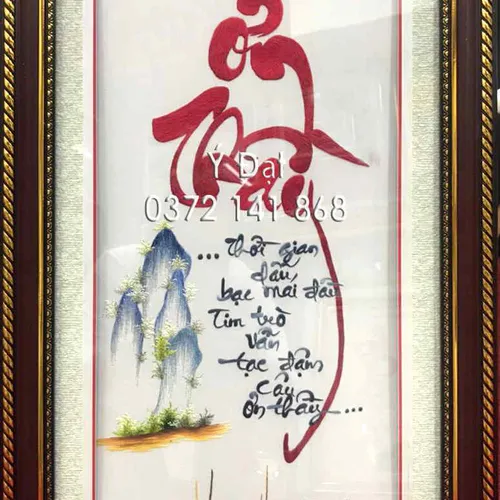 Ơn
Thầy
Ý Đạt
0372 141 868
... Thời gian
dẫu
bạc mái đầu
Tim trò
vẫn
tạc đậm
câu
ơn thầy ...